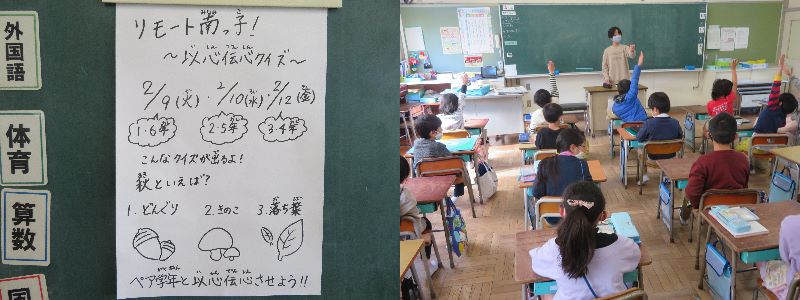 外国語
体育
算数
リモート南っ子!
～以心伝心クイズ～
2/9(火)・2/10(水)・2/12(金)
1・6年 2・5年 3・4年
こんなクイズが出るよ!
秋といえば?
1.どんぐり 2.きのこ 3.落ち葉
ペア学年と以心伝心させよう!!